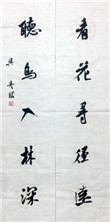 看花尋徑遠
聽鳥入林深